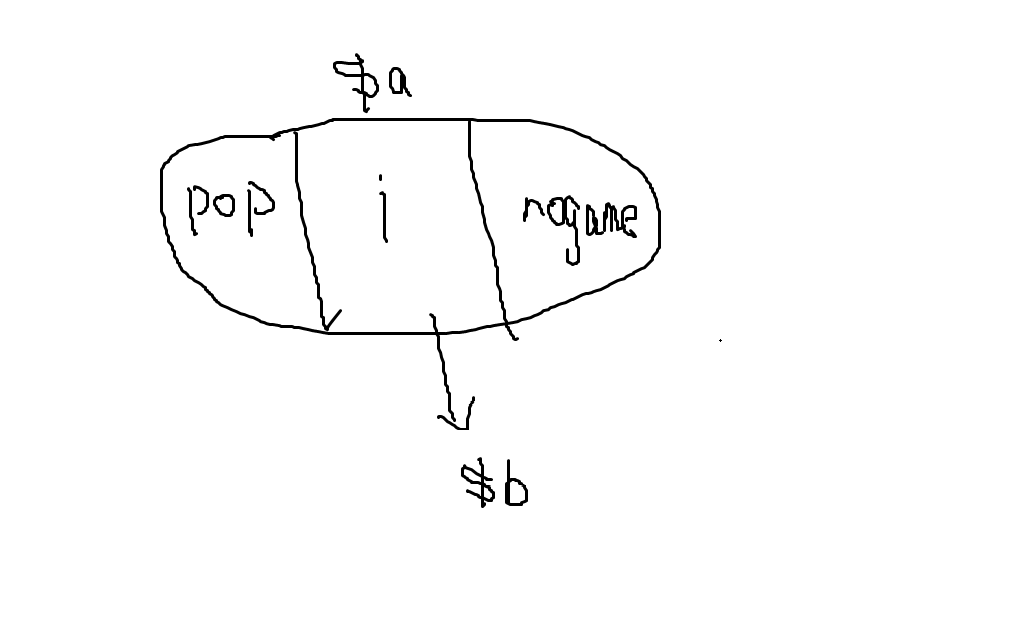 $a
pop i nogame
$b